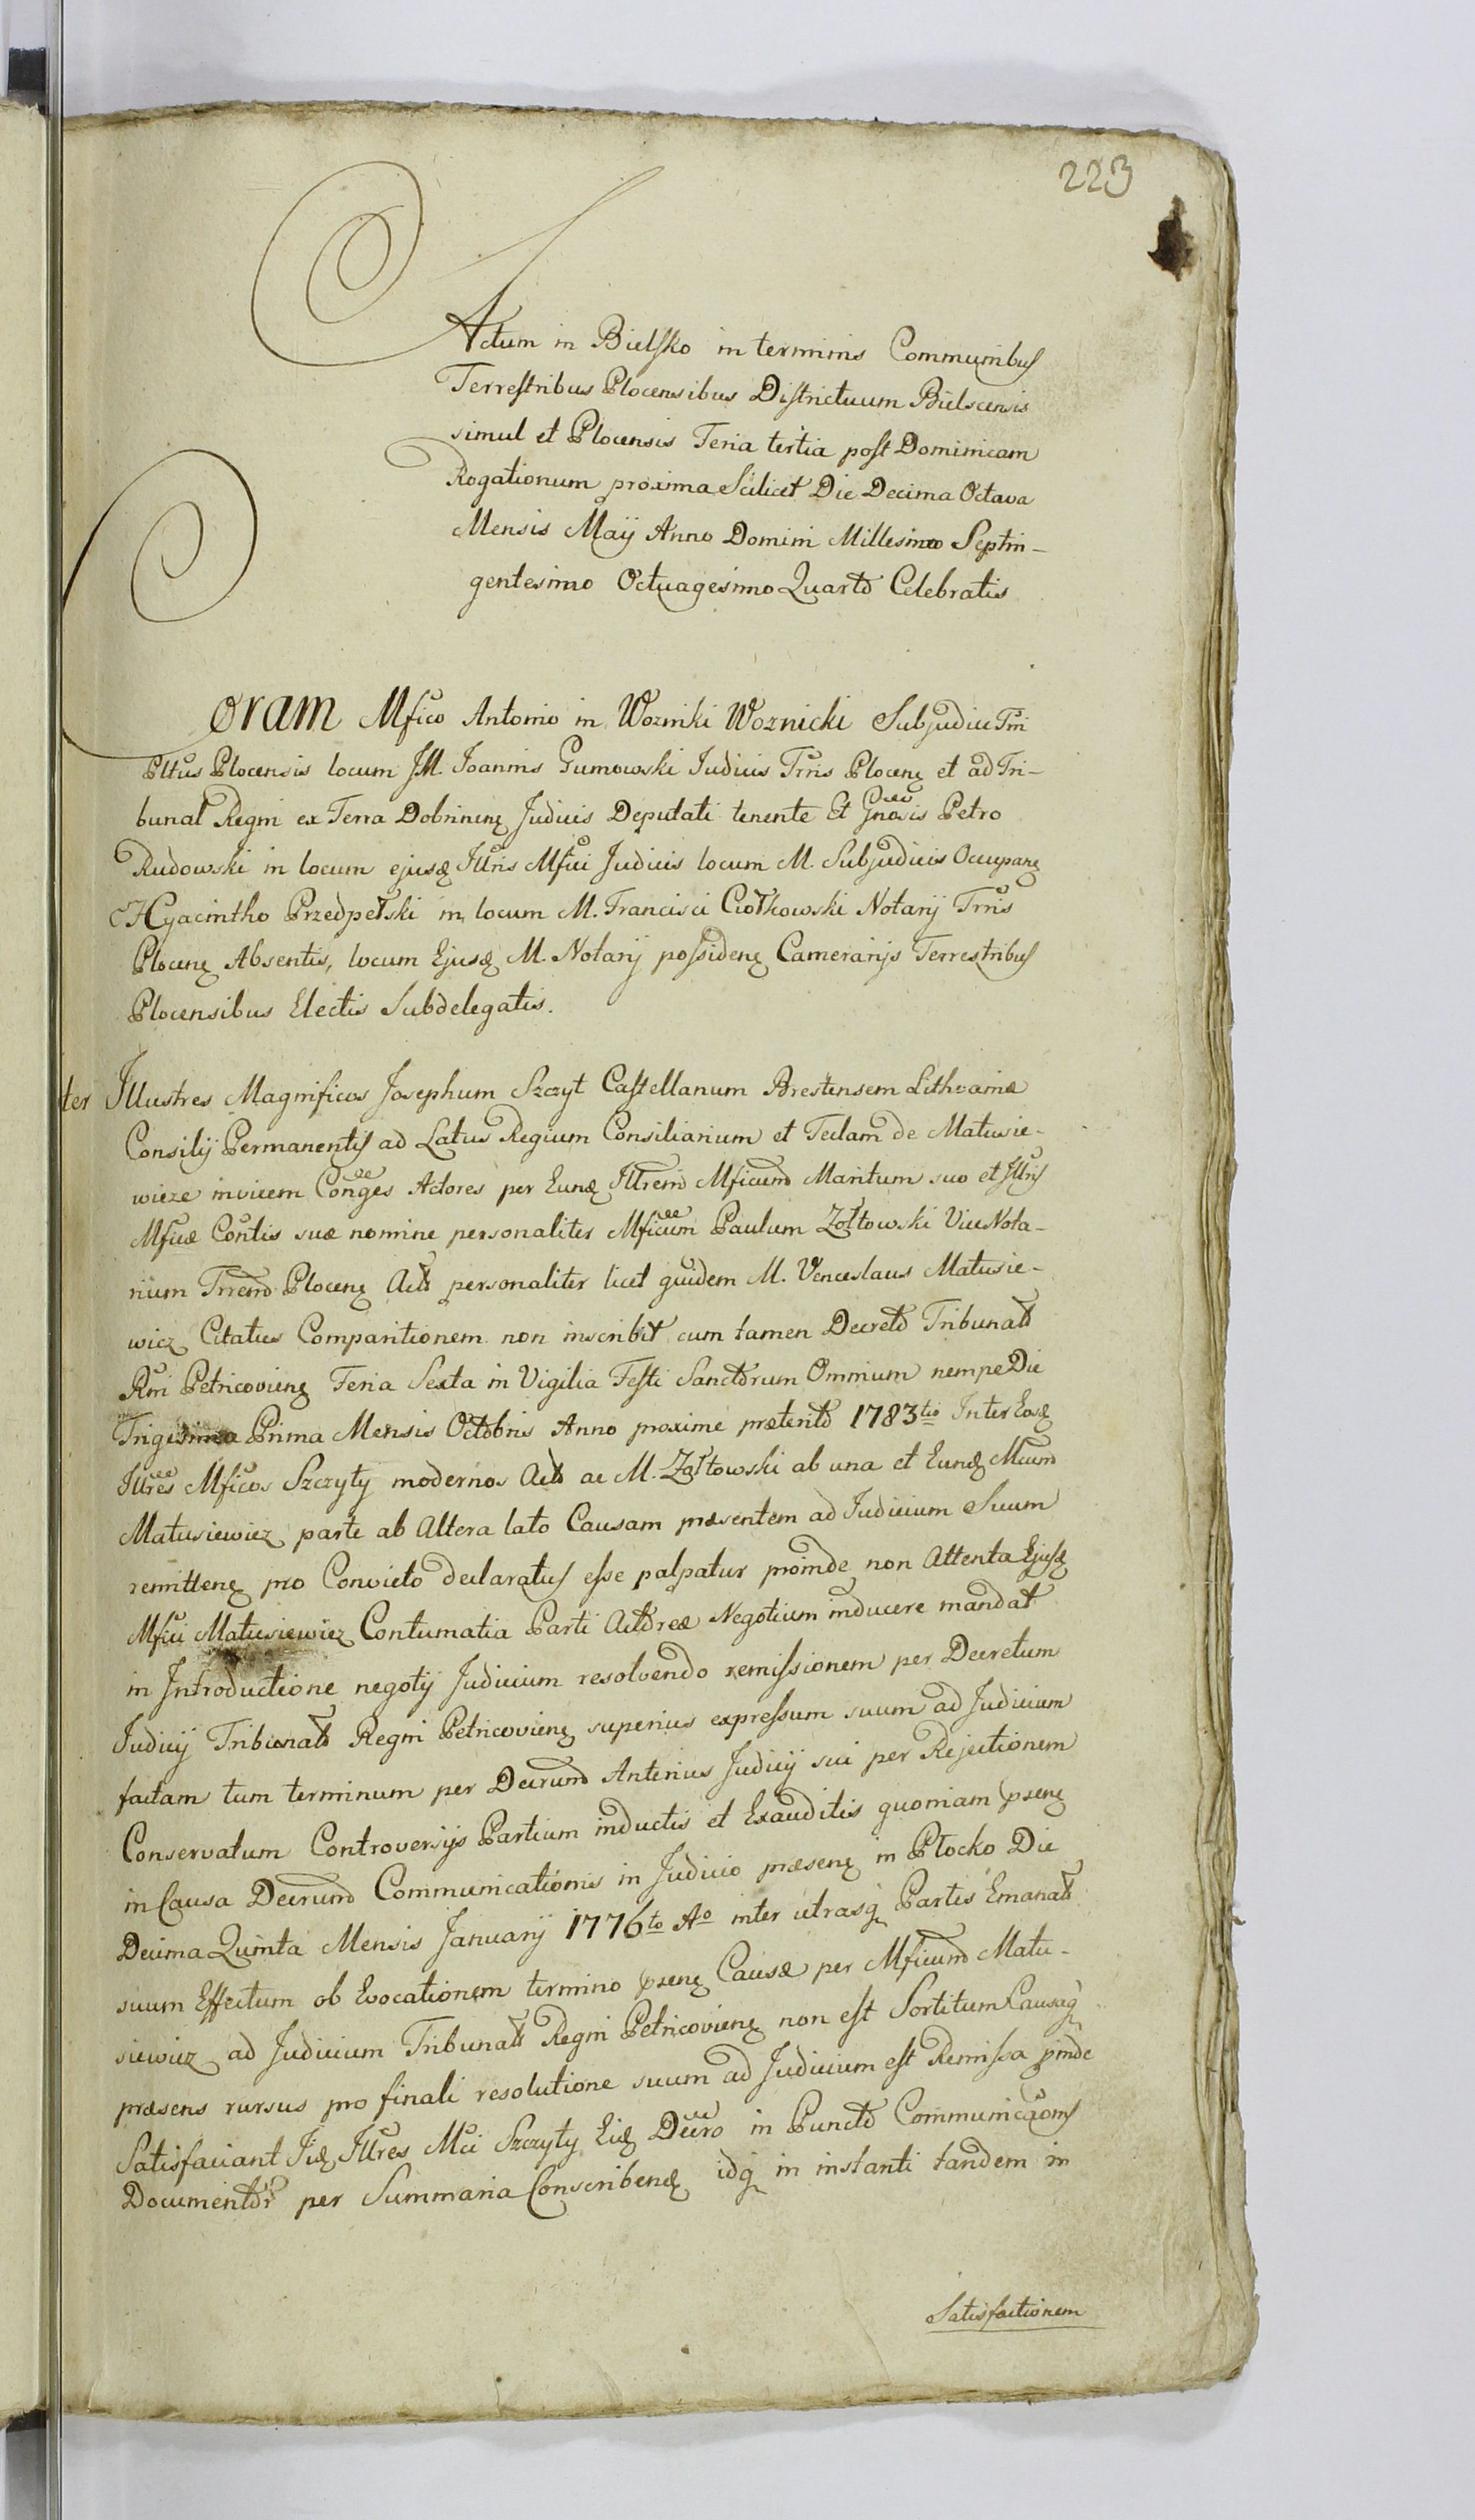 223
Actum in Bielsko in terminis Communibus
Terrestribus Plocensibus Districtuum Bielscensis
simul et Plocensis Feria tertia post Dominicam
Rogationum proxima Scilicet Die Decima Octava
Mensis Maij Anno Domini Millesimo Septin-
gentesimo Octuagesimo Quarto Celebratis
Coram Mfico Antonio in Wozniki Woznicki Subjudice Trri
Pltus Plocensis locum JM. Joannis Gumowski Iudicis Trris Plocens et ad Tri-
bunal Regni ex Terra Dobrinens Judicis Deputati tenente Et Gnosis Petro
Rudowski in locum ejusd Illris Mfici Judicis locum M. Subjudicis Occupans
Hyacintho Przedpełski in locum M. Francisci Ciołkowski Notarij Trris
Plocens Absentis, locum Ejusd M. Notarij possidens Camerarijs Terrestribus
Plocensibus Electis Subdelegatis.
ter Illustres Magnificos Josephum Szczyt Castellanum Brestensem Lithvaniæ
Consilij Permanentis ad Latus Regium Consiliarium et Teclam de Matusie-
wicze invicem Conges Actores per Eund Illrem Mficum Maritum suo et Illris
Mficæ Contis suæ nomine personaliter Mficum Paulum Zołtowski ViceNota-
rium Trrem Plocens Actt personaliter licet quidem M. Venceslaus Matusie-
wicz Citatus Comparitionem non inscribit cum tamen Decreto Tribunatt
Rni Petricoviens Feria Sexta in Vigilia Festi Sanctorum Omnium nempe Die
Trigesima Prima Mensis Octobris Anno proxime præterito 1783tio Inter Eosd
Illres Mficos Szczyty modernos Actt ac M. Zołtowski ab una et Eund Mcum
Matusiewicz parte ab Altera lato Causam præsentem ad Judicium Suum
remittens pro Convicto declaratus esse palpatur proinde non Attenta Ejusd
Mfici Matusiewicz Contumatia Parti Actoreæ Negotium inducere mandat
in Introductione negotij Judicium resolvendo remissionem per Decretum
Judicij Tribunatt Regni Petricoviens superius expressum suum ad Judicium
factam tum terminum per Decrum Anterius Judicij sui per Rejectionem
Conservatum Controversijs Partium inductis et Exauditis quoniam psens
in Causa Decrum Communicationis in Judicio præsens in Płocko Die
Decima Quinta Mensis Januarij 1776to Ao inter utrasq Partes Emanatt
suum Effectum ob Evocationem termino psens Causæ per Mficum Matu-
siewicz ad Judicium Tribunatt Regni Petricoviens non est Sortitum Causaq
præsens rursus pro finali resolutione suum ad Judicium est Remissa pinde
Satisfaciant Iid Illres Mci Szczyty Eid Decro in Puncto Communicaoms
Documentor per Summaria Conscribend idq in instanti tandem in
Satisfactionem